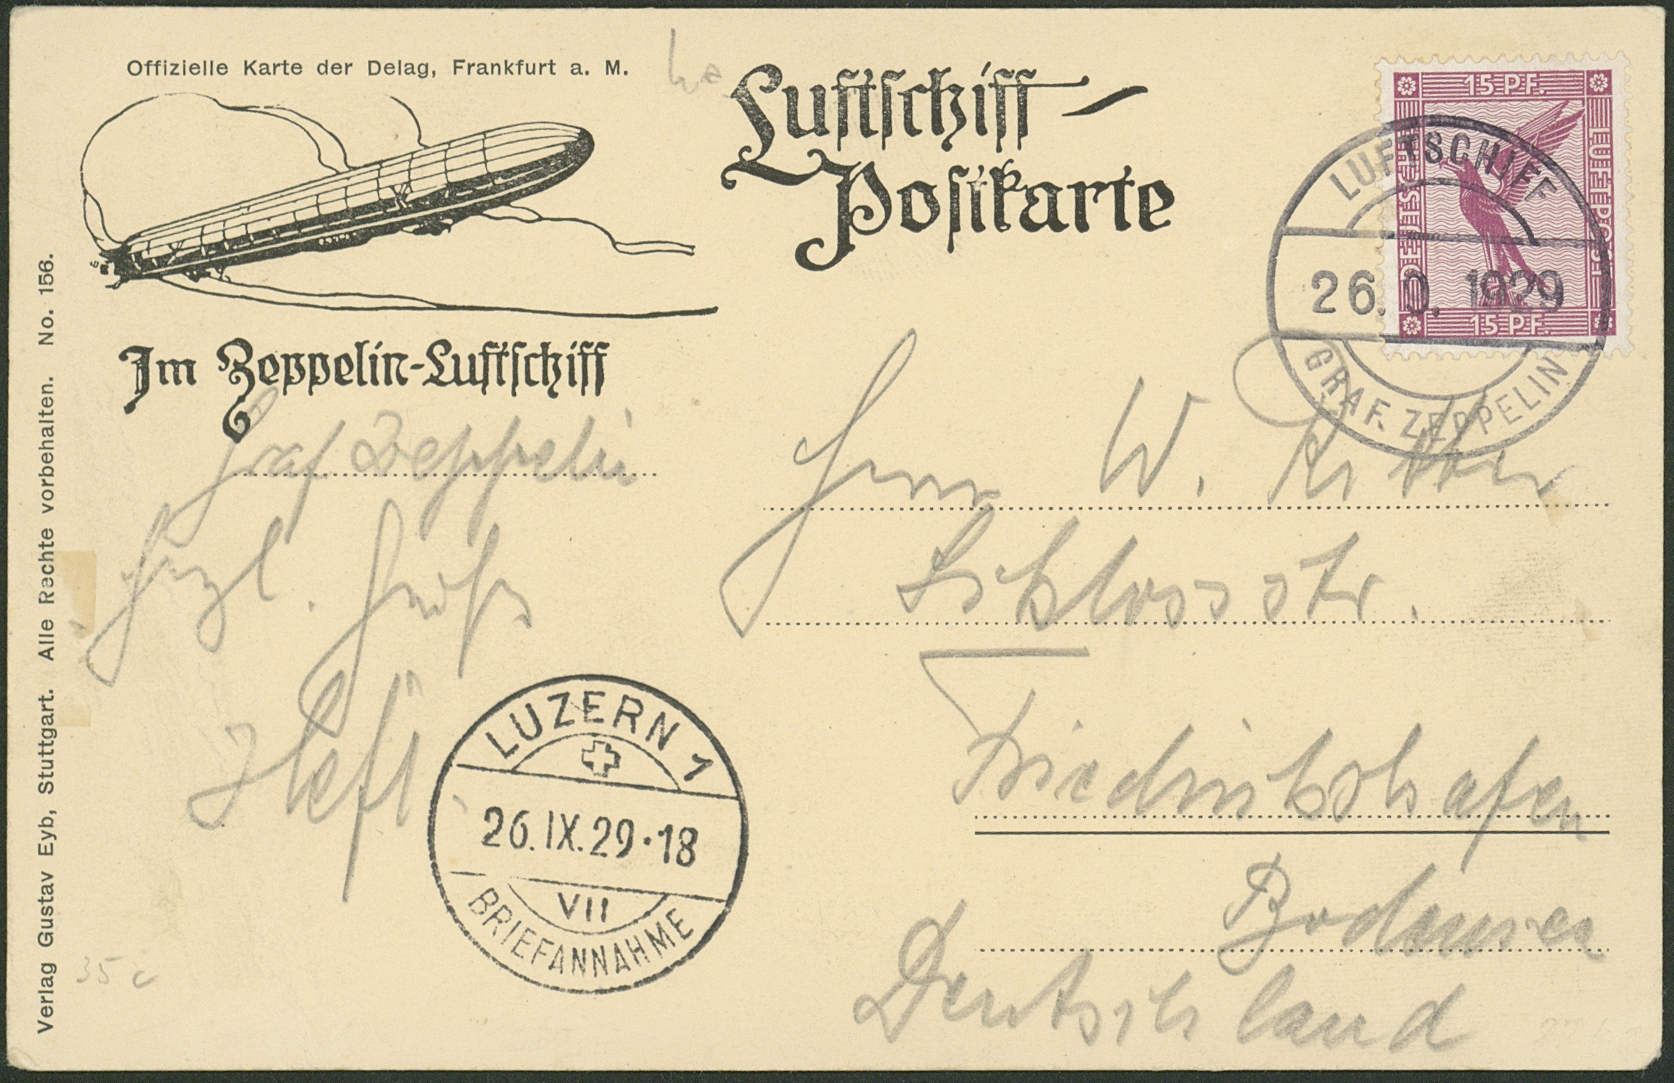 Offizielle Karte der Delag, Frankfurt a. M.
Luftschiff-
Postkarte
Im Zeppelin-Luftschiff
15 PF.
DEUTSCHE
LUFTPOST
15 PF.
LUFTSCHIFF
26. 9. 1929
GRAF. ZEPPELIN
Graf Zeppelin
Herzl.
Herrn W. Ritter
Schlossstr.
Friedrichshafen
Bodensee
Deutschland
LUZERN 1
26. IX. 29·18
VII
BRIEFANNAHME
35 c
Verlag Gustav Eyb, Stuttgart. Alle Rechte vorbehalten. No. 156.